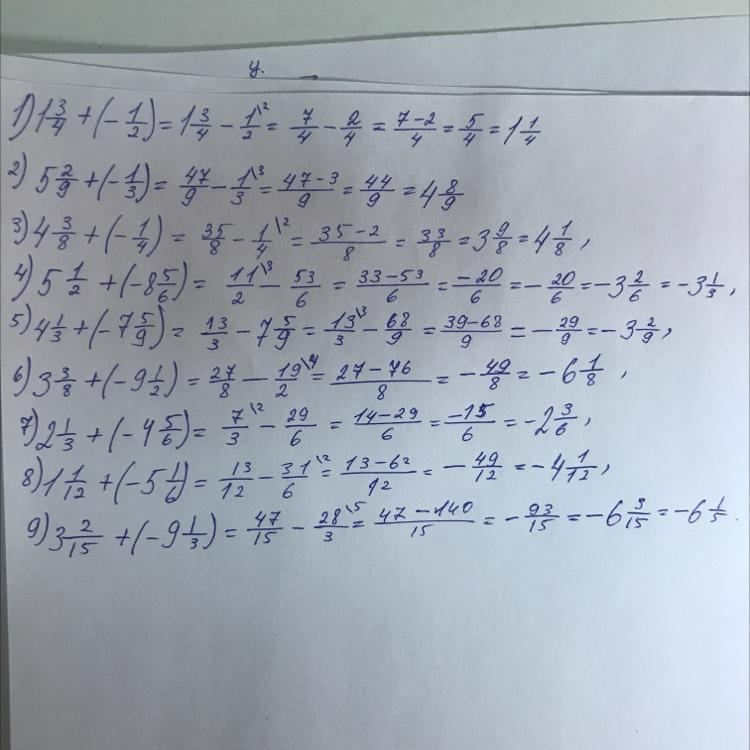 у.
1) 1 3/4 + (- 1/2) = 1 3/4 - 1/2 \2 = 7/4 - 2/4 = 7-2/4 = 5/4 = 1 1/4
2) 5 2/9 + (- 1/3) = 47/9 - 1/3 \3 = 47-3/9 = 44/9 = 4 8/9
3) 4 3/8 + (- 1/4) = 35/8 - 1/4 \2 = 35-2/8 = 33/8 = 3 9/8 = 4 1/8,
4) 5 1/2 + (-8 5/6) = 11/2 \3 - 53/6 = 33-53/6 = -20/6 = - 20/6 = -3 2/6 = -3 1/3,
5) 4 1/3 + (-7 5/9) = 13/3 - 7 5/9 = 13/3 \3 - 68/9 = 39-68/9 = - 29/9 = -3 2/9,
6) 3 3/8 + (-9 1/2) = 27/8 - 19/2 \4 = 27-76/8 = - 49/8 = -6 1/8,
7) 2 1/3 + (-4 5/6) = 7/3 \2 - 29/6 = 14-29/6 = -15/6 = -2 3/6,
8) 1 1/12 + (-5 1/6) = 13/12 - 31/6 \2 = 13-62/12 = - 49/12 = -4 1/12,
9) 3 2/15 + (-9 1/3) = 47/15 - 28/3 \5 = 47-140/15 = - 93/15 = -6 3/15 = -6 1/5.